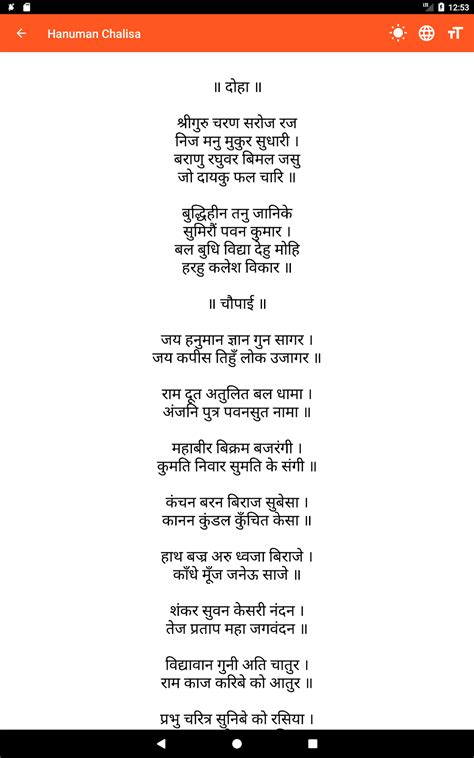 12:53
Hanuman Chalisa
॥ दोहा ॥
श्रीगुरु चरण सरोज रज
निज मनु मुकुर सुधारी ।
बराणु रघुवर बिमल जसु
जो दायकु फल चारि ॥
बुद्धिहीन तनु जानिके
सुमिरौं पवन कुमार ।
बल बुधि विद्या देहु मोहि
हरहु कलेश विकार ॥
॥ चौपाई ॥
जय हनुमान ज्ञान गुन सागर ।
जय कपीस तिहुँ लोक उजागर ॥
राम दूत अतुलित बल धामा ।
अंजनि पुत्र पवनसुत नामा ॥
महाबीर बिक्रम बजरंगी ।
कुमति निवार सुमति के संगी ॥
कंचन बरन बिराज सुबेसा ।
कानन कुंडल कुँचित केसा ॥
हाथ बज्र अरु ध्वजा बिराजे ।
काँधे मूँज जनेऊ साजे ॥
शंकर सुवन केसरी नंदन ।
तेज प्रताप महा जगवंदन ॥
विद्यावान गुनी अति चातुर ।
राम काज करिबे को आतुर ॥
प्रभु चरित्र सुनिबे को रसिया ।